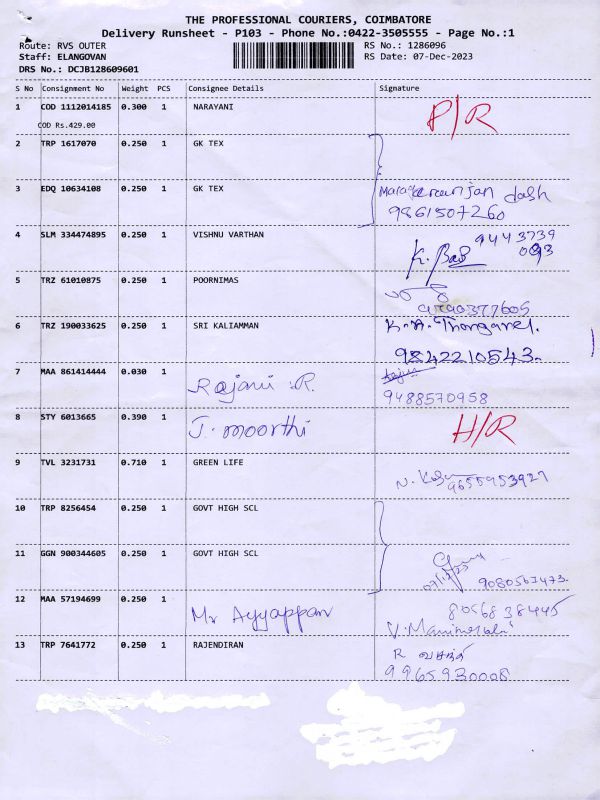 THE PROFESSIONAL COURIERS, COIMBATORE
Delivery Runsheet - P103 - Phone No.:0422-3505555 - Page No.:1
Route: RVS OUTER RS No.: 1286096
Staff: ELANGOVAN RS Date: 07-Dec-2023
DRS No.: DCJB128609601
S No Consignment No Weight PCS Consignee Details Signature
1 COD 1112014185 0.300 1 NARAYANI P/R
COD Rs.429.00
2 TRP 1617070 0.250 1 GK TEX
3 EDQ 10634108 0.250 1 GK TEX dash
9861507260
4 SLM 334474895 0.250 1 VISHNU VARTHAN 9443739
K.
5 TRZ 61010875 0.250 1 POORNIMAS
6 TRZ 190033625 0.250 1 SRI KALIAMMAN K.A. Thangavel.
9842210543.
7 MAA 861414444 0.030 1 Rajani .R.
9488570958
8 STY 6013665 0.390 1 J. moorthi H/R
9 TVL 3231731 0.710 1 GREEN LIFE N.
9655953927
10 TRP 8256454 0.250 1 GOVT HIGH SCL
11 GGN 900344605 0.250 1 GOVT HIGH SCL
07/12/23 9080563473.
12 MAA 57194699 0.250 1 Mr Ayyappan 8056838445
13 TRP 7641772 0.250 1 RAJENDIRAN R வசந்தி
9965930008